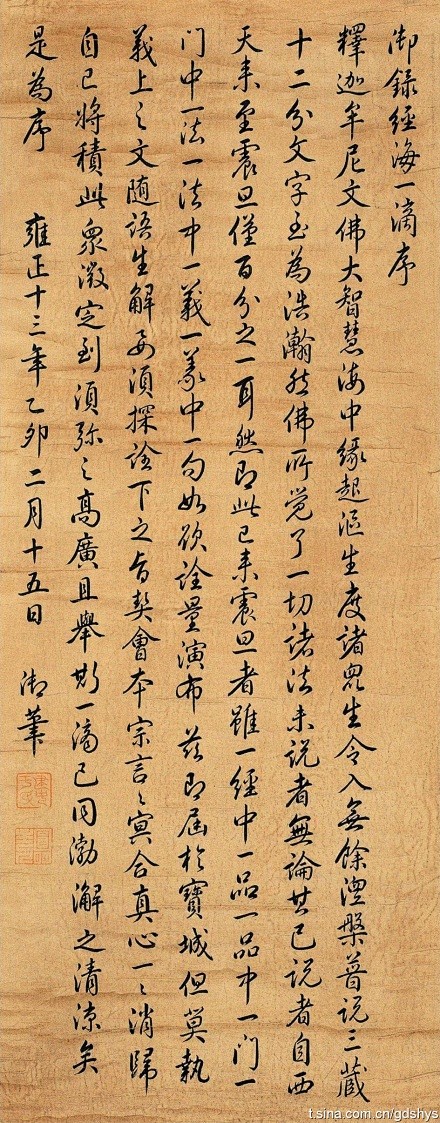 御錄經海一滴序
釋迦牟尼文佛大智慧海中緣起漚生度諸眾生令入無餘涅槃普說三藏
十二分文字至為浩瀚然佛所覺了一切諸法未說者無論其已說者自西
天來至震旦僅百分之一耳然即此已來震旦者雖一經中一品一品中一門一
門中一法一法中一義一義中一句如欲詮量演布茲即屆於寶城但莫執
義上之文隨語生解要須探詮下之旨契會本宗言言冥合真心一一消歸
自己將積此眾微定到須彌之高廣且舉斯一滴已同渤澥之清涼矣
是為序
雍正十三年乙卯二月十五日 御筆
t.sina.com.cn/gdshys